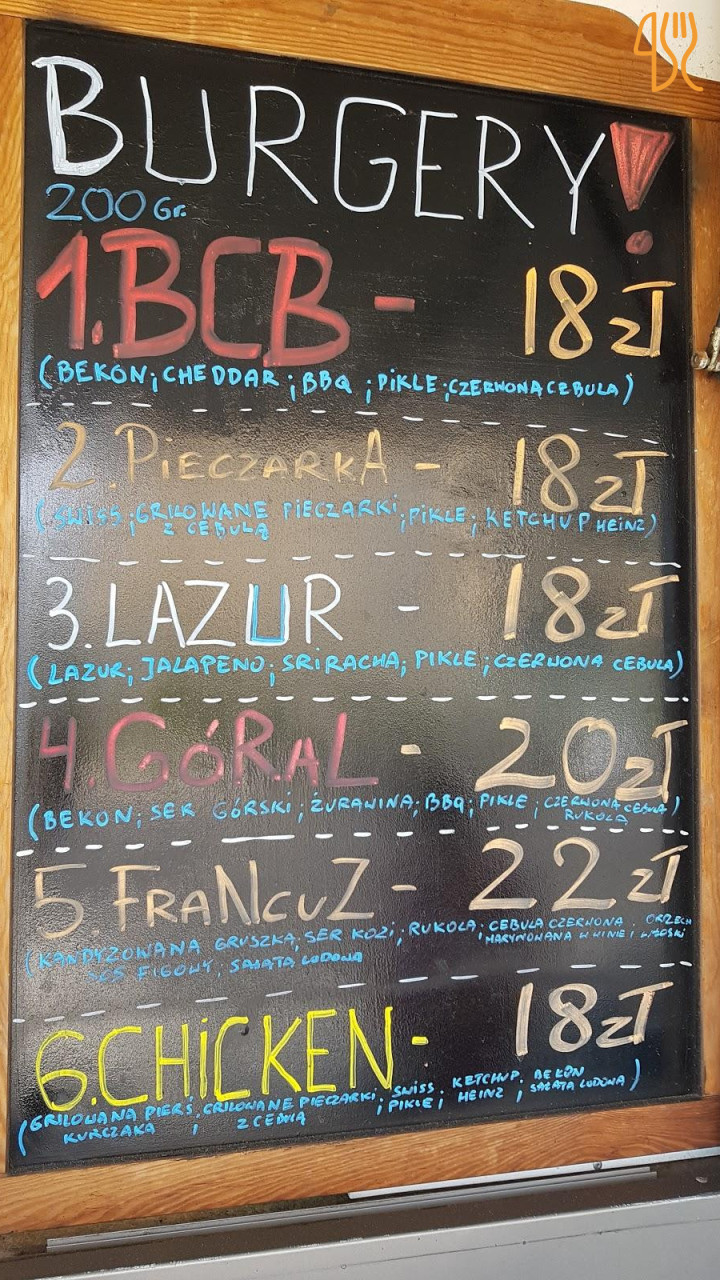 BURGERY!
200Gr.
1.BCB - 18zł
(BEKON; CHEDDAR; BBQ; PIKLE; CZERWONA CEBULA)
2.PIECZARKA - 18zł
(SWISS; GRILOWANE PIECZARKI; PIKLE; KETCHUP HEINZ)
Z CEBULĄ
3.LAZUR - 18zł
(LAZUR; JALAPENO; SRIRACHA; PIKLE; CZERWONA CEBULA)
4.GóRAL - 20zł
(BEKON; SER GÓRSKI; ŻURAWINA; BBQ; PIKLE; CZERWONA CEBULA)
RUKOLA
5.FRANCUZ - 22zł
(KANDYZOWANA GRUSZKA, SER KOZI; RUKOLA; CEBULA CZERWONA; ORZECH
MARYNOWANA W WINIE; WŁOSKI
SOS FIGOWY; SAŁATA LODOWA
6.CHiCKEN - 18zł
(GRILOWANA PIERŚ, GRILOWANE PIECZARKI; SWISS KETCHUP BEKON
KURCZAKA; Z CEBULĄ PIKLE; HEINZ; SAŁATA LODOWA)